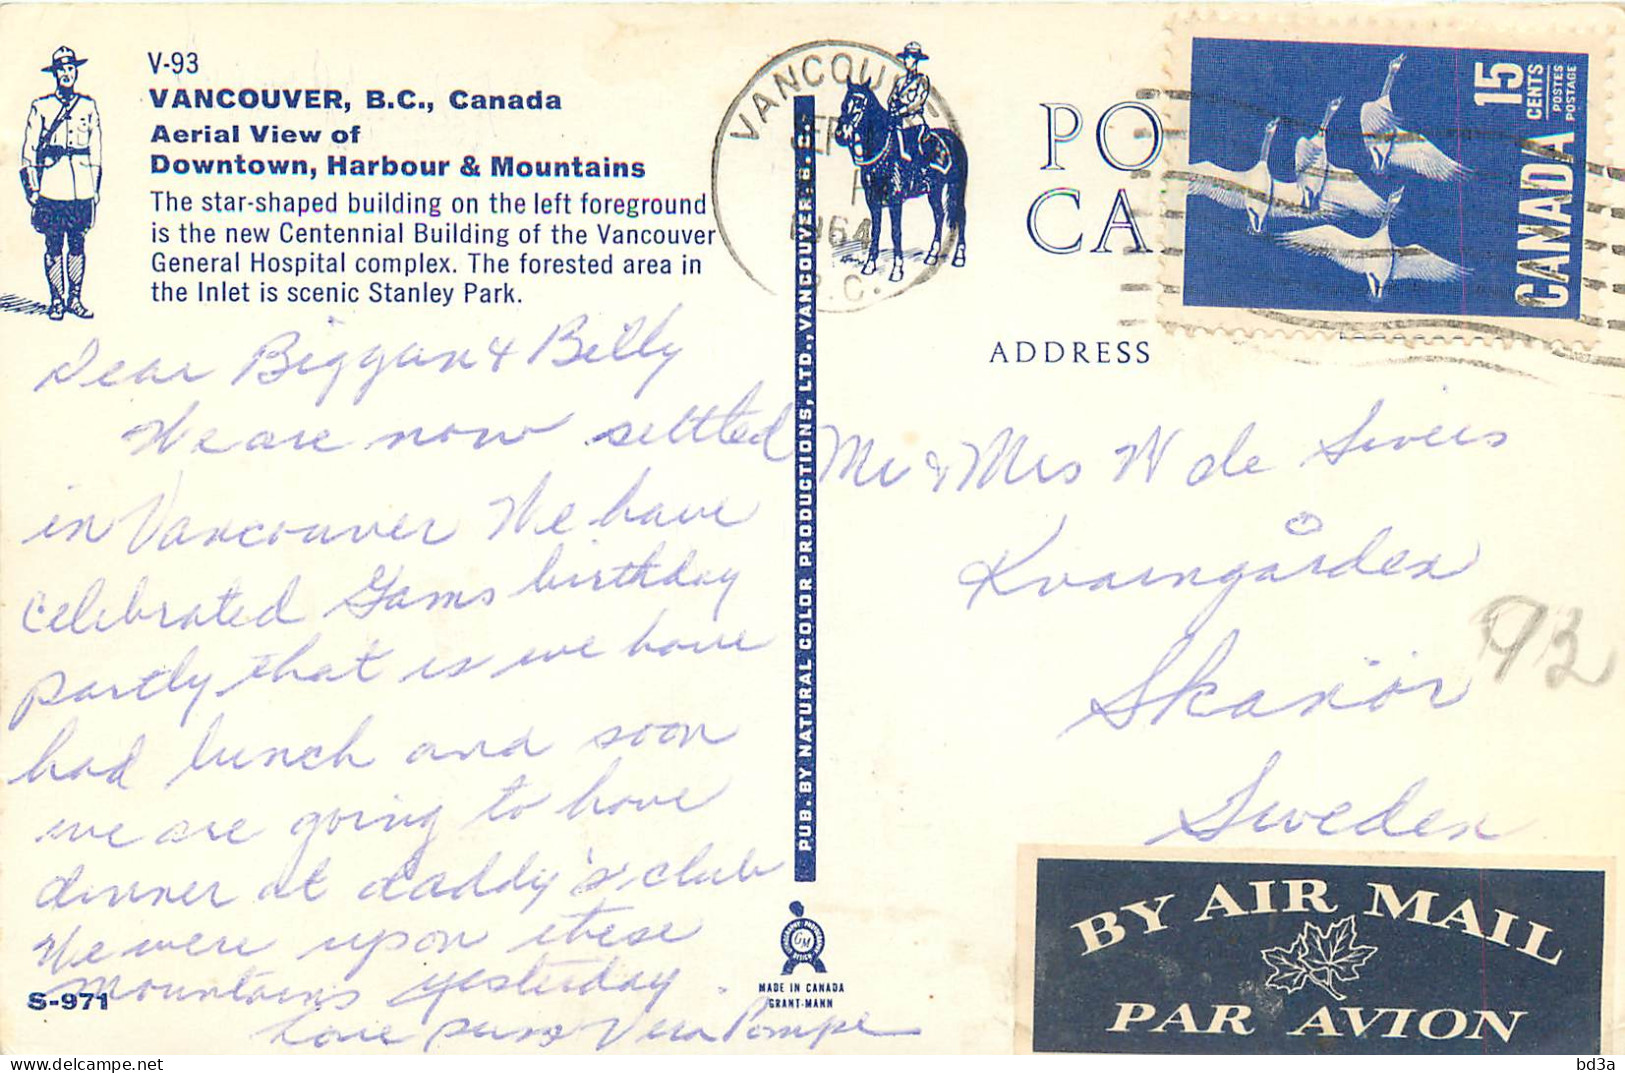 V-93
VANCOUVER, B.C., Canada
Aerial View of
Downtown, Harbour & Mountains
The star-shaped building on the left foreground
is the new Centennial Building of the Vancouver
General Hospital complex. The forested area in
the Inlet is scenic Stanley Park.
Dear Biggan & Billy
We are now settled
in Vancouver We have
celebrated Gams birthday
partly that is we have
had lunch and soon
we are going to have
dinner at daddy's club
We were upon these
mountains yesterday.
love Vera Pompe
S-971
PUB. BY NATURAL COLOR PRODUCTIONS, LTD., VANCOUVER, B.C.
GM
MADE IN CANADA
GRANT-MANN
VANCOUVER
SEP
PM
1964
B.C.
PO
CA
15
CENTS
POSTES
POSTAGE
CANADA
ADDRESS
Mr & Mrs W de Sivers
Kvarngården
Skanör
Sweden
92
BY AIR MAIL
PAR AVION
bd3a